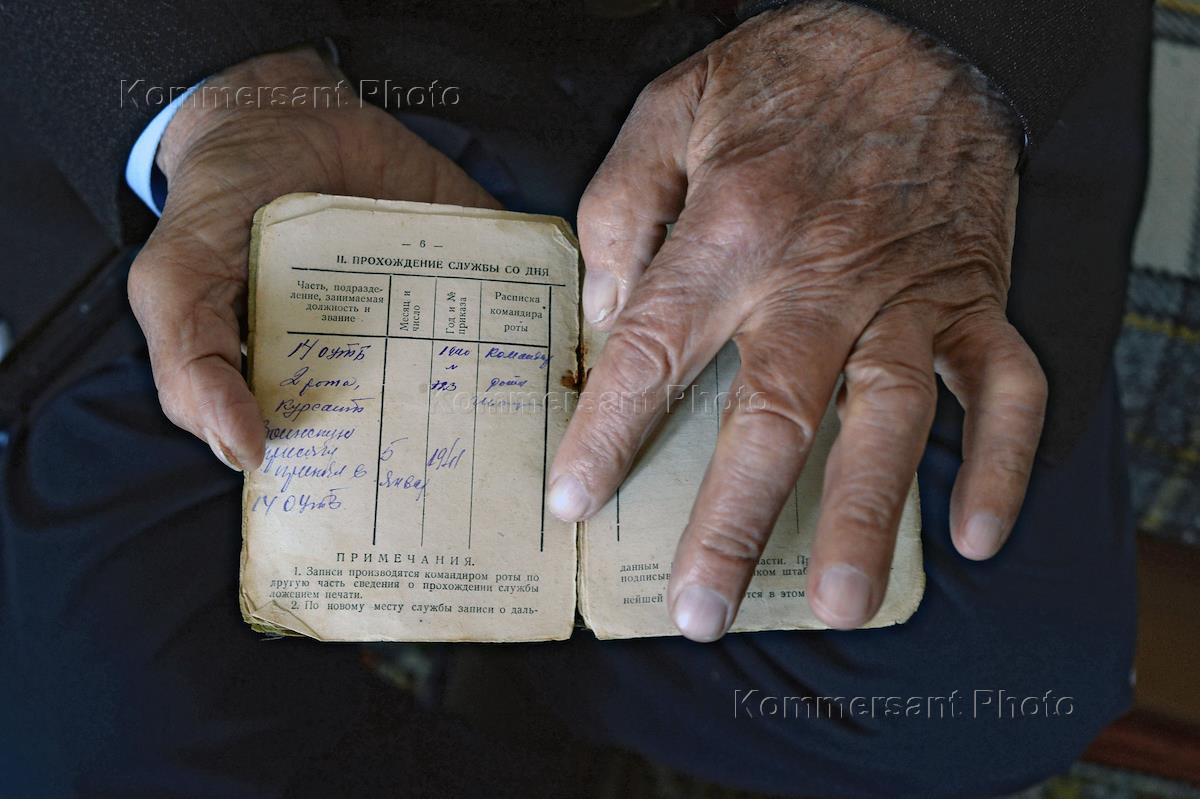 Kommersant Photo
— 6 —
II. ПРОХОЖДЕНИЕ СЛУЖБЫ СО ДНЯ
Часть, подразде-
ление, занимаемая
должность и
звание
Месяц и
число
Год и №
приказа
Расписка
командира
роты
14 ОУТБ
2 рота,
Курсантъ
1940
№
723
Командир
роты
Kommersant Photo
Воинскую
присягу
принял в
14 ОУТБ.
5
январ
1941
ПРИМЕЧАНИЯ.
1. Записи производятся командиром роты по
другую часть сведения о прохождении службы
ложением печати.
2. По новому месту службы записи о даль-
данным
части. П
подписыв
ком штаб
нейшей
ются в этом
Kommersant Photo